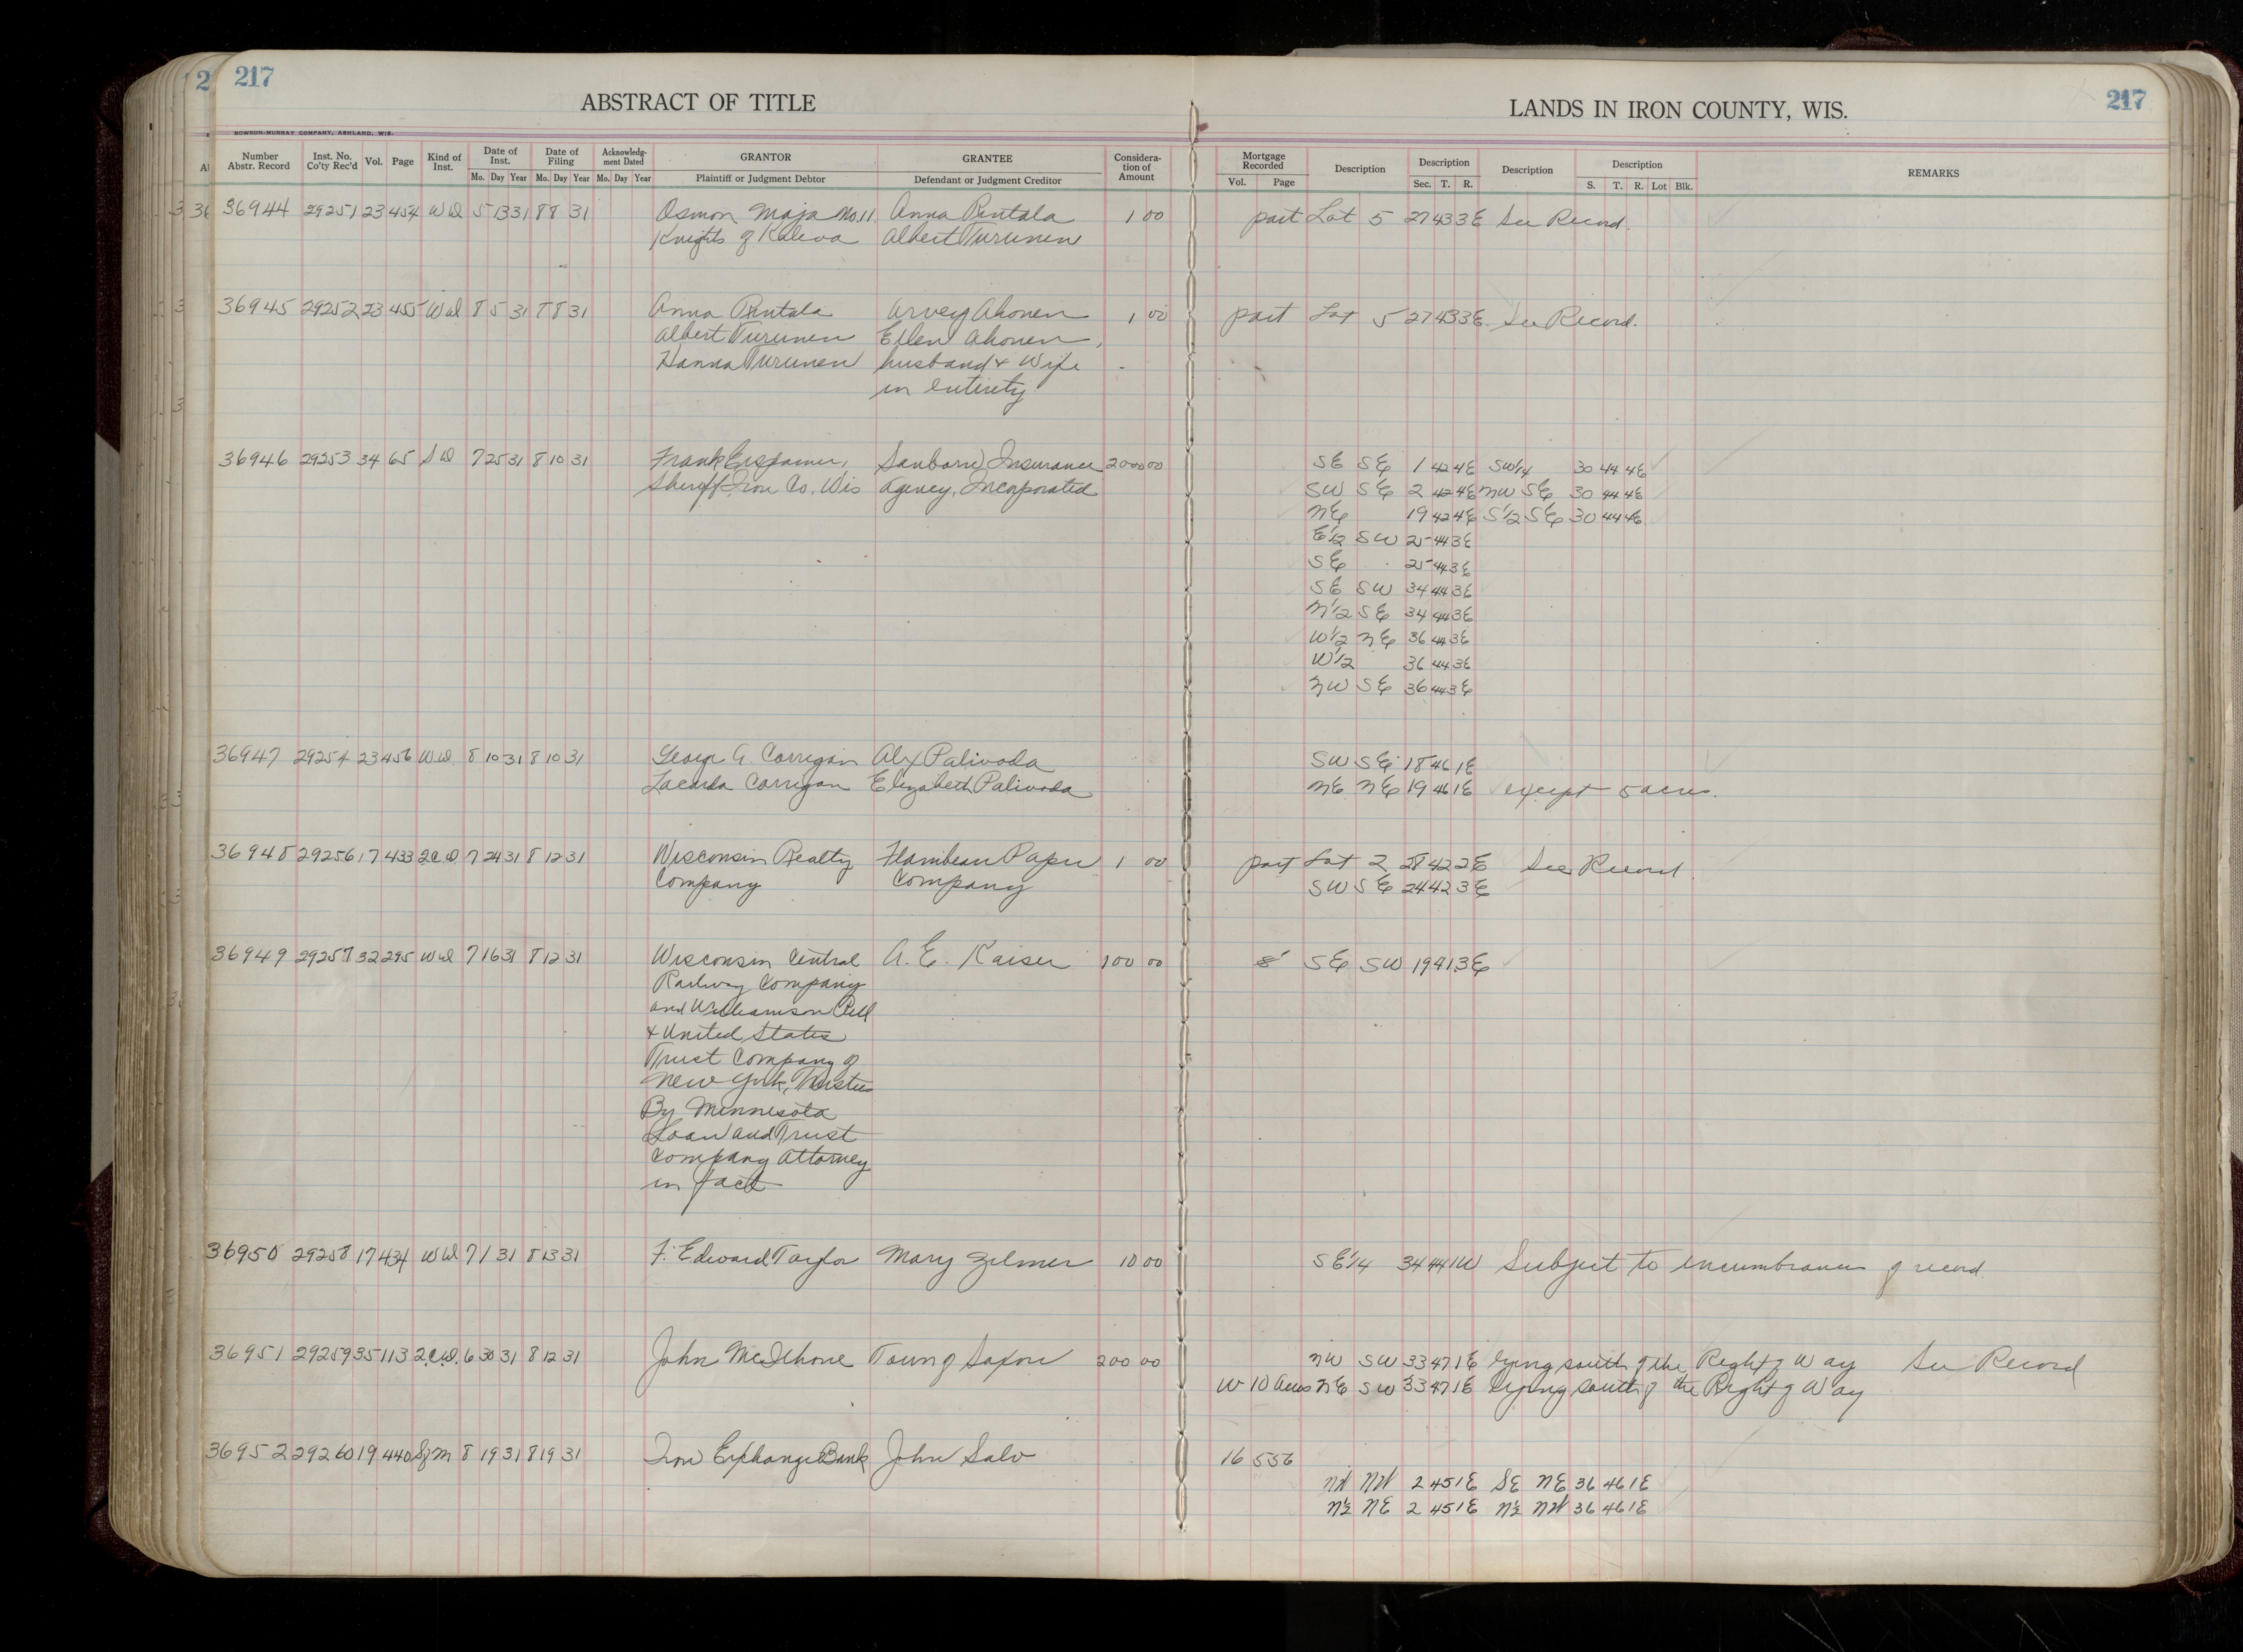 217
ABSTRACT OF TITLE
LANDS IN IRON COUNTY, WIS.
217
BOWRON-MURRAY COMPANY, ASHLAND, WIS.
Number Abstr. Record Inst. No. Co'ty Rec'd Vol. Page Kind of Inst. Date of Inst. Mo. Day Year Date of Filing Mo. Day Year Acknowledg-ment Dated Mo. Day Year GRANTOR Plaintiff or Judgment Debtor GRANTEE Defendant or Judgment Creditor Considera-tion of Amount Mortgage Recorded Vol. Page Description Description Sec. T. R. Description Description S. T. R. Lot Blk. REMARKS
36944 29251 23 454 WD 5 13 31 8 8 31 Osmon Maja No. 11 Anna Rintala 1 00 part Lot 5 27 43 3E See Record.
Knights of Kaleva Albert Turunen
36945 29252 23 455 WD 8 5 31 8 8 31 Anna Rintala Arvey Ahonen 1 00 part Lot 5 27 43 3E See Record.
Albert Turunen Ellen Ahonen,
Hanna Turunen husband & Wife
in entirety
36946 29253 34 65 SD 7 25 31 8 10 31 Frank Erspamer, Sanborn Insurance 2000 00 SE SE 1 42 4E SW1/4 30 44 4E
Sheriff Iron Co. Wis Agency, Incorporated SW SE 2 42 4E NW SE 30 44 4E
NE 19 42 4E S1/2 SE 30 44 4E
E1/2 SW 25 44 3E
SE 25 44 3E
SE SW 34 44 3E
N1/2 SE 34 44 3E
W1/2 NE 36 44 3E
W1/2 36 44 3E
NW SE 36 44 3E
36947 29254 23 456 WD 8 10 31 8 10 31 George A. Corrigan Alex Palivoda SW SE 18 46 1E
Corrigan Elizabeth Palivoda NE NE 19 46 1E except 5 acres.
36948 29256 17 433 2CD 7 24 31 8 12 31 Wisconsin Realty Flambeau Paper 1 00 part Lot 2 28 42 2E See Record.
Company Company SW SE 24 42 3E
36949 29257 32 295 WD 7 16 31 8 12 31 Wisconsin Central A. E. Kaiser 100 00 SE SW 19 41 3E
Railway Company
and Williamson Pell
& United States
Trust Company of
New York, Trustees
By Minnesota
Loan and Trust
Company Attorney
in fact
36950 29258 17 434 WD 7 1 31 8 13 31 F. Edward Taylor Mary Zilmer 10 00 SE1/4 34 44 1W Subject to encumbrances of record.
36951 29259 35 113 2.C.D. 6 30 31 8 12 31 John McIlhone Town of Saxon 200 00 NW SW 33 47 1E lying south of the Right of Way See Record
W 10 Acres NE SW 33 47 1E lying south of the Right of Way
36952 29260 19 440 SfM 8 19 31 8 19 31 Iron Exchange Bank John Salo 16 556
NW NW 2 45 1E SE NE 36 46 1E
N½ NE 2 45 1E N½ NW 36 46 1E